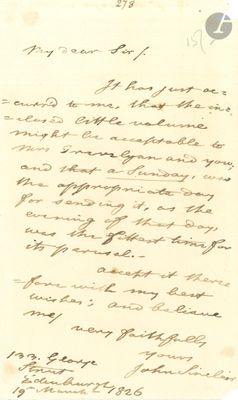 278
My dear Sir /.
It has just oc=
=curred to me, that the in=
=closed little volume
might be acceptable to
Mrs Trevelyan and you,
and that a Sunday, was
the appropriate day
for sending it, as the
evening of that day,
was the fittest time for
its perusal. -
accept it there=
=fore with my best
wishes; and believe
me /
very faithfully
yours
John Sinclair
133. George
Street
Edinburgh
19 March 1826